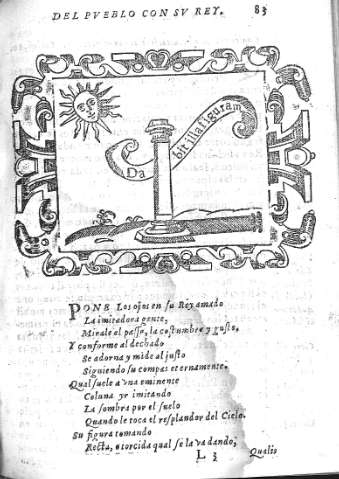 DEL PVEBLO CON SV REY. 83
Dabit illa figuram
PONE Los ojos en su Rey amado
La imitadora gente,
Mirale el passo, la costumbre y gusto,
Y conforme al dechado
Se adorna y mide al justo
Siguiendo su compas eternamente.
Qual suele a vna eminente
Coluna yr imitando
La sombra por el suelo
Quando le toca el resplandor del Cielo.
Su figura tomando
Recta, o torcida qual se la va dando,
L 3 Qualis